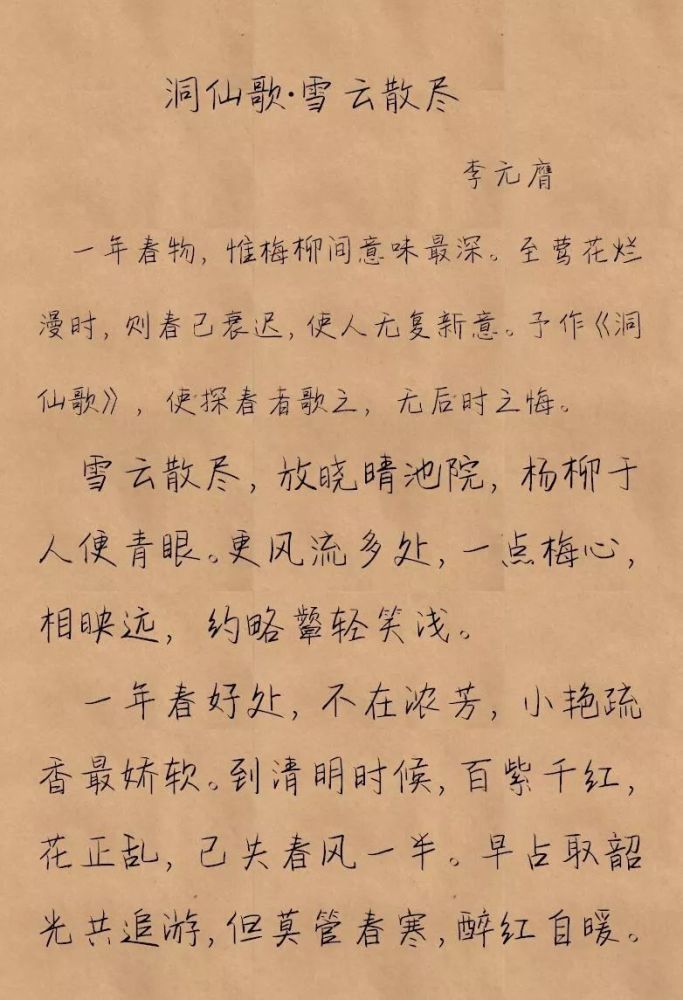 洞仙歌·雪云散尽
李元膺
一年春物，惟梅柳间意味最深。至莺花烂
漫时，则春已衰迟，使人无复新意。予作《洞
仙歌》，使探春者歌之，无后时之悔。
雪云散尽，放晓晴池院，杨柳于
人便青眼。更风流多处，一点梅心，
相映远，约略颦轻笑浅。
一年春好处，不在浓芳，小艳疏
香最娇软。到清明时候，百紫千红，
花正乱，已失春风一半。早占取韶
光共追游，但莫管春寒，醉红自暖。